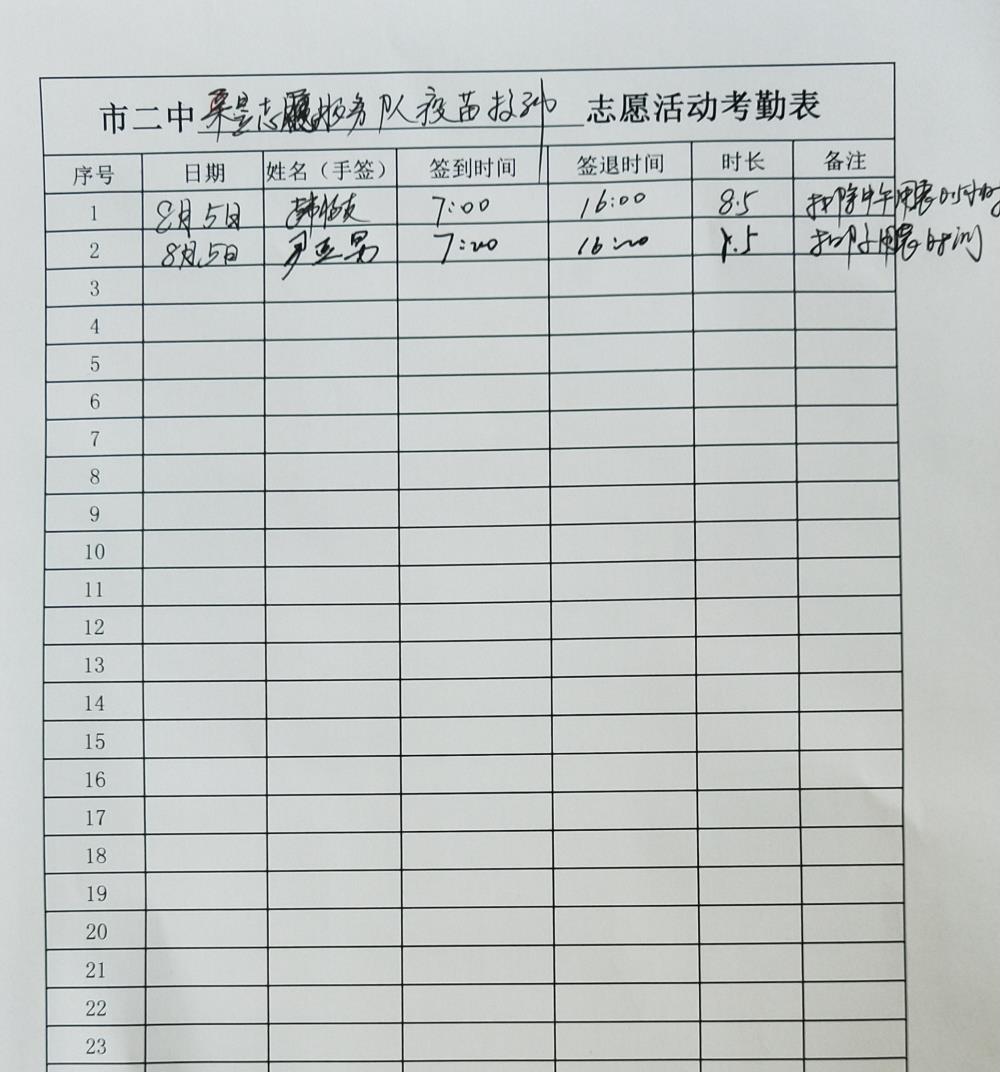 市二中 志愿服务队疫苗接种 志愿活动考勤表
序号 日期 姓名（手签） 签到时间 签退时间 时长 备注
1 8月5日 7:00 16:00 8.5 扣除中午用餐时间
2 8月5日 尹亚男 7:20 16:20 8.5 扣除 用餐时间
3
4
5
6
7
8
9
10
11
12
13
14
15
16
17
18
19
20
21
22
23